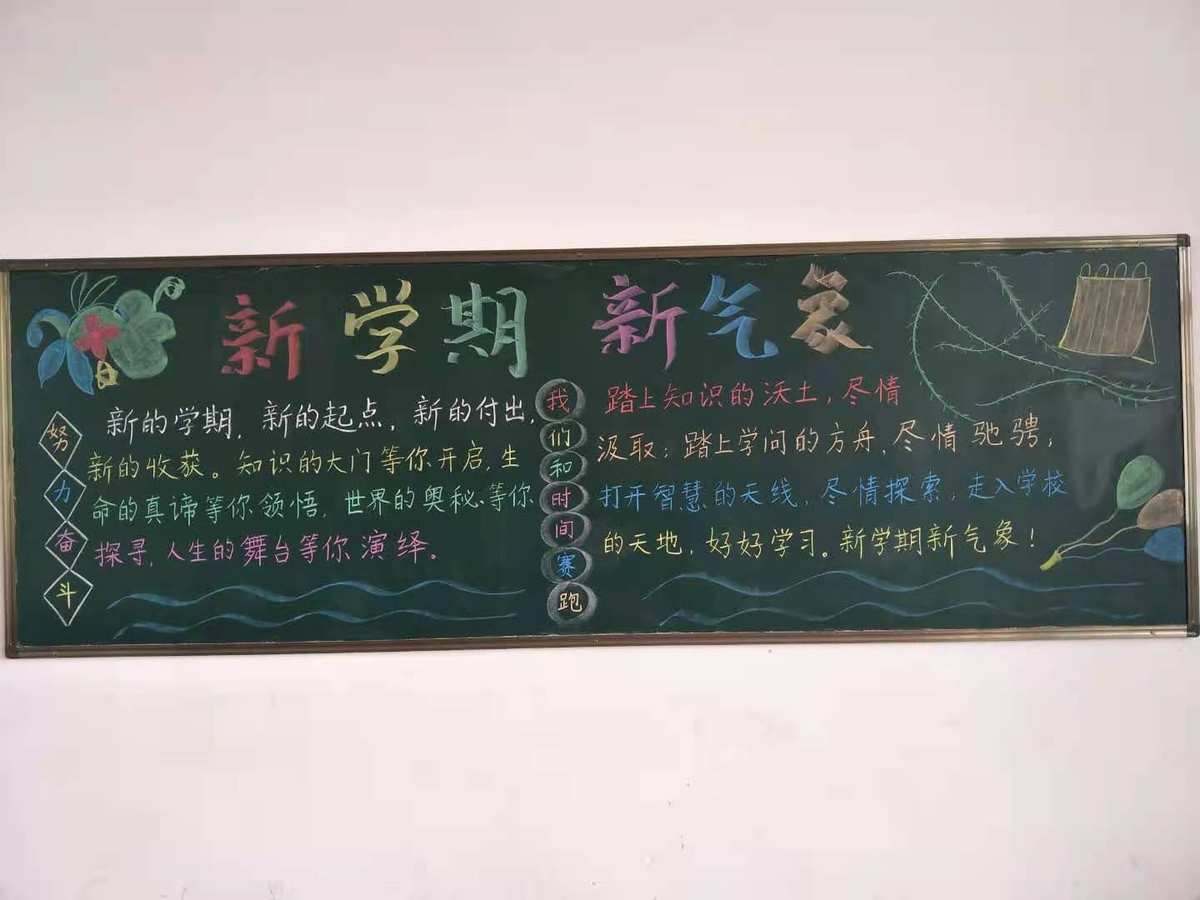 新学期 新气象
努力奋斗
新的学期，新的起点，新的付出，
新的收获。知识的大门等你开启，生
命的真谛等你领悟，世界的奥秘、等你
探寻，人生的舞台等你演绎。
我们和时间赛跑
踏上知识的沃土，尽情
汲取；踏上学问的方舟，尽情驰骋；
打开智慧的天线，尽情探索，走入学校
的天地，好好学习。新学期新气象！